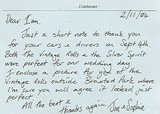 Colchester
2/11/04
Dear Ian,
Just a short note to thank you
for your cars & drivers on Sept 4th.
Both the Vintage Rolls & the Silver Spirit
were perfect for our wedding day.
I enclose a picture for you of the
Vintage Rolls outside Braxted Park where
I'm sure you will agree it looked just
perfect!
All the best &
thanks again - Joe & Sophie